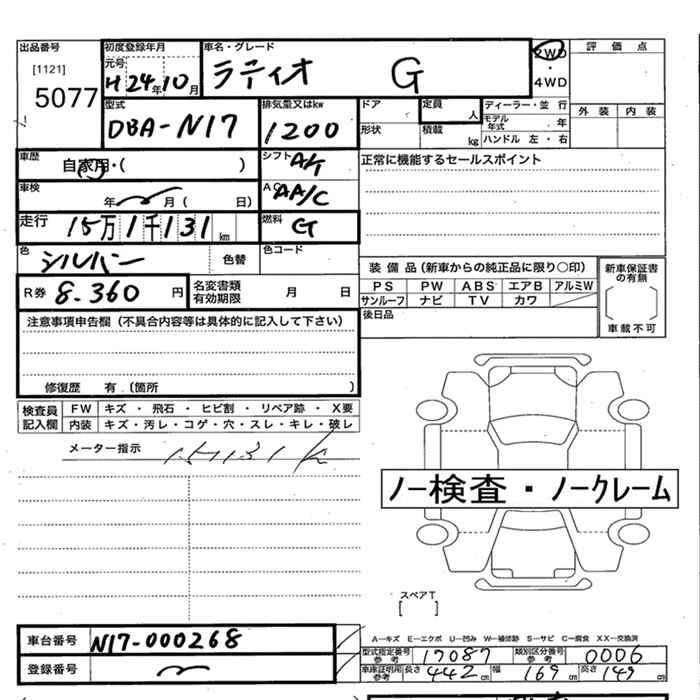 出品番号 初度登録年月 車名・グレード 2WD・4WD 評価点
[1121] 元号
5077 H24年10月 ラティオ G
型式 排気量又はkw ドア 定員 人 ディーラー・並行 外装 内装
DBA-N17 1200 形状 積載 kg モデル年式 年 ハンドル 左・右
車歴 自家用・( ) シフト A/T 正常に機能するセールスポイント
車検 年 月( 日) AC AA/C
走行 15万1千131km 燃料 G
色 シルバー 色替 色コード
R券 8.360円 名変書類有効期限 月 日
装備品(新車からの純正品に限り○印) 新車保証書の有無
PS PW ABS エアB アルミW
サンルーフ ナビ TV カワ
後日品 車載不可
注意事項申告欄(不具合内容等は具体的に記入して下さい)
修復歴 有(箇所 )
検査員記入欄 FW キズ・飛石・ヒビ割・リペア跡・X要
内装 キズ・汚レ・コゲ・穴・スレ・キレ・破レ
メーター指示
ノー検査・ノークレーム
スペアT
[ ]
車台番号 N17-000268
登録番号
A―キズ E―エクボ U―凹み W―補修跡 S―サビ C―腐食 XX―交換済
型式指定番号参考 17087 類別区分番号参考 0006
車庫証明用参考 長さ 442cm 幅 169cm 高さ 149cm